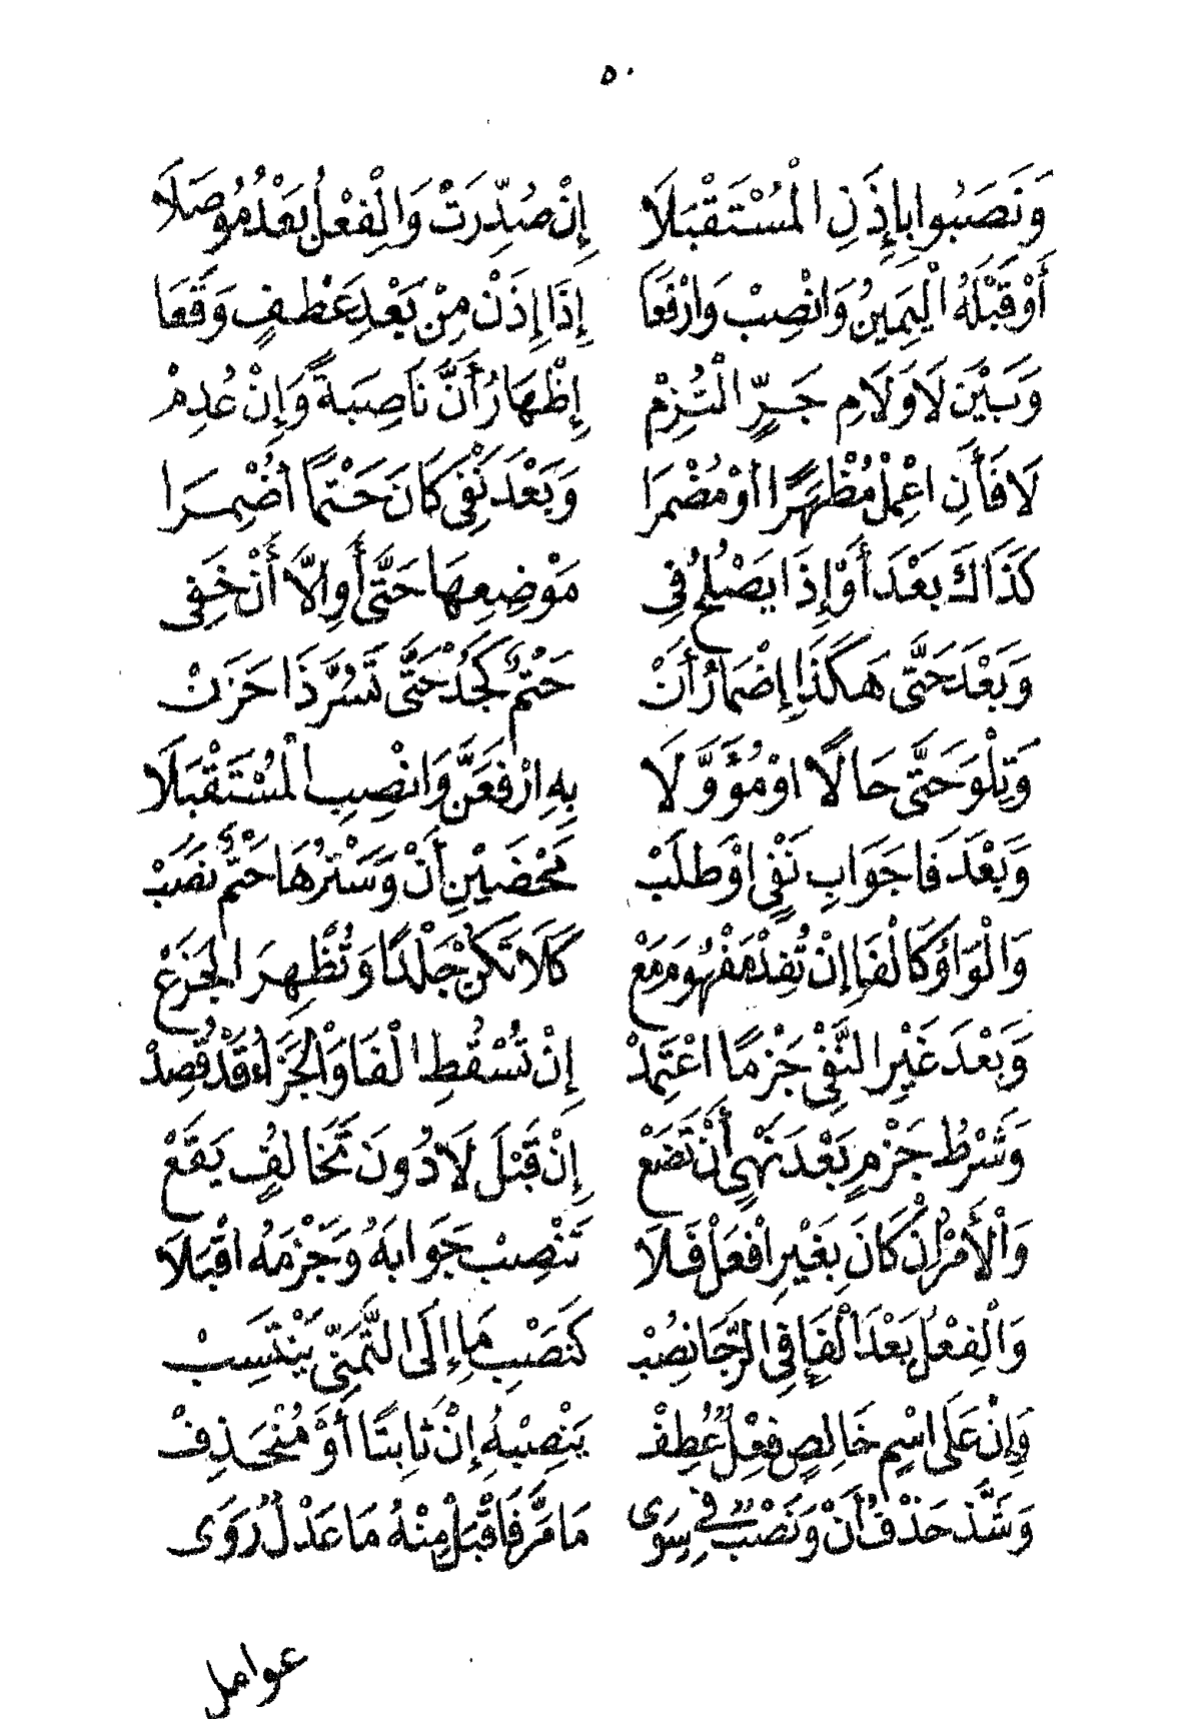 ٥٠
وَنَصَبُوا بِإِذَنِ الْمُسْتَقْبَلَا إِنْ صُدِّرَتْ وَالْفِعْلُ بَعْدُ مُوصَلَا
أَوْ قَبْلَهُ الْيَمِينُ وَانْصِبْ وَارْفَعَا إِذَا إِذَنْ مِنْ بَعْدِ عَطْفٍ وَقَعَا
وَبَيْنَ لَا وَلَامِ جَرٍّ الْتُزِمْ إِظْهَارُ أَنْ نَاصِبَةً وَإِنْ عُدِمْ
لَا فَأَنِ اعْمِلْ مُظْهَرًا اوْ مُضْمَرَا وَبَعْدَ نَفْىِ كَانَ حَتْمًا أُضْمِرَا
كَذَاكَ بَعْدَ أَوْ إِذَا يَصْلُحُ فِي مَوْضِعِهَا حَتَّى أَوِ الَّا أَنْ خَفِى
وَبَعْدَ حَتَّى هٰكَذَا إِضْمَارُ أَنْ حَتْمٌ كَجُدْ حَتَّى تَسُرَّ ذَا حَزَنْ
وَتِلْوَ حَتَّى حَالًا اوْ مُؤَوَّلَا بِهِ ارْفَعَنَّ وَانْصِبِ الْمُسْتَقْبَلَا
وَبَعْدَ فَا جَوَابِ نَفْيٍ اوْ طَلَبْ مَحْضَيْنِ أَنْ وَسَتْرُهَا حَتْمٌ نَصَبْ
وَالْوَاوُ كَالْفَا إِنْ تُفِدْ مَفْهُومَ مَعْ كَلَا تَكُنْ جَلْدًا وَتُظْهِرَ الْجَزَعْ
وَبَعْدَ غَيْرِ النَّفْىِ جَزْمًا اعْتَمِدْ إِنْ تُسْقُطِ الْفَا وَالْجَزَاءُ قَدْ قُصِدْ
وَشَرْطُ جَزْمٍ بَعْدَ نَهْىٍ أَنْ تَضَعْ إِنْ قَبْلَ لَا دُونَ تَخَالُفٍ يَقَعْ
وَالْأَمْرُ إِنْ كَانَ بِغَيْرِ افْعَلْ فَلَا تَنْصِبْ جَوَابَهُ وَجَزْمَهُ اقْبَلَا
وَالْفِعْلُ بَعْدَ الْفَاءِ فِي الرَّجَا نُصِبْ كَنَصْبِ مَا إِلَى التَّمَنِّي يَنْتَسِبْ
وَإِنْ عَلَى اسْمٍ خَالِصٍ فِعْلٌ عُطِفْ يَنْصِبُهُ إِنْ ثَابِتًا أَوْ مُنْحَذِفْ
وَشَذَّ حَذْفُ أَنْ وَنَصْبٌ فِي سِوَى مَا مَرَّ فَاقْبَلْ مِنْهُ مَا عَدْلٌ رَوَى
عوامل